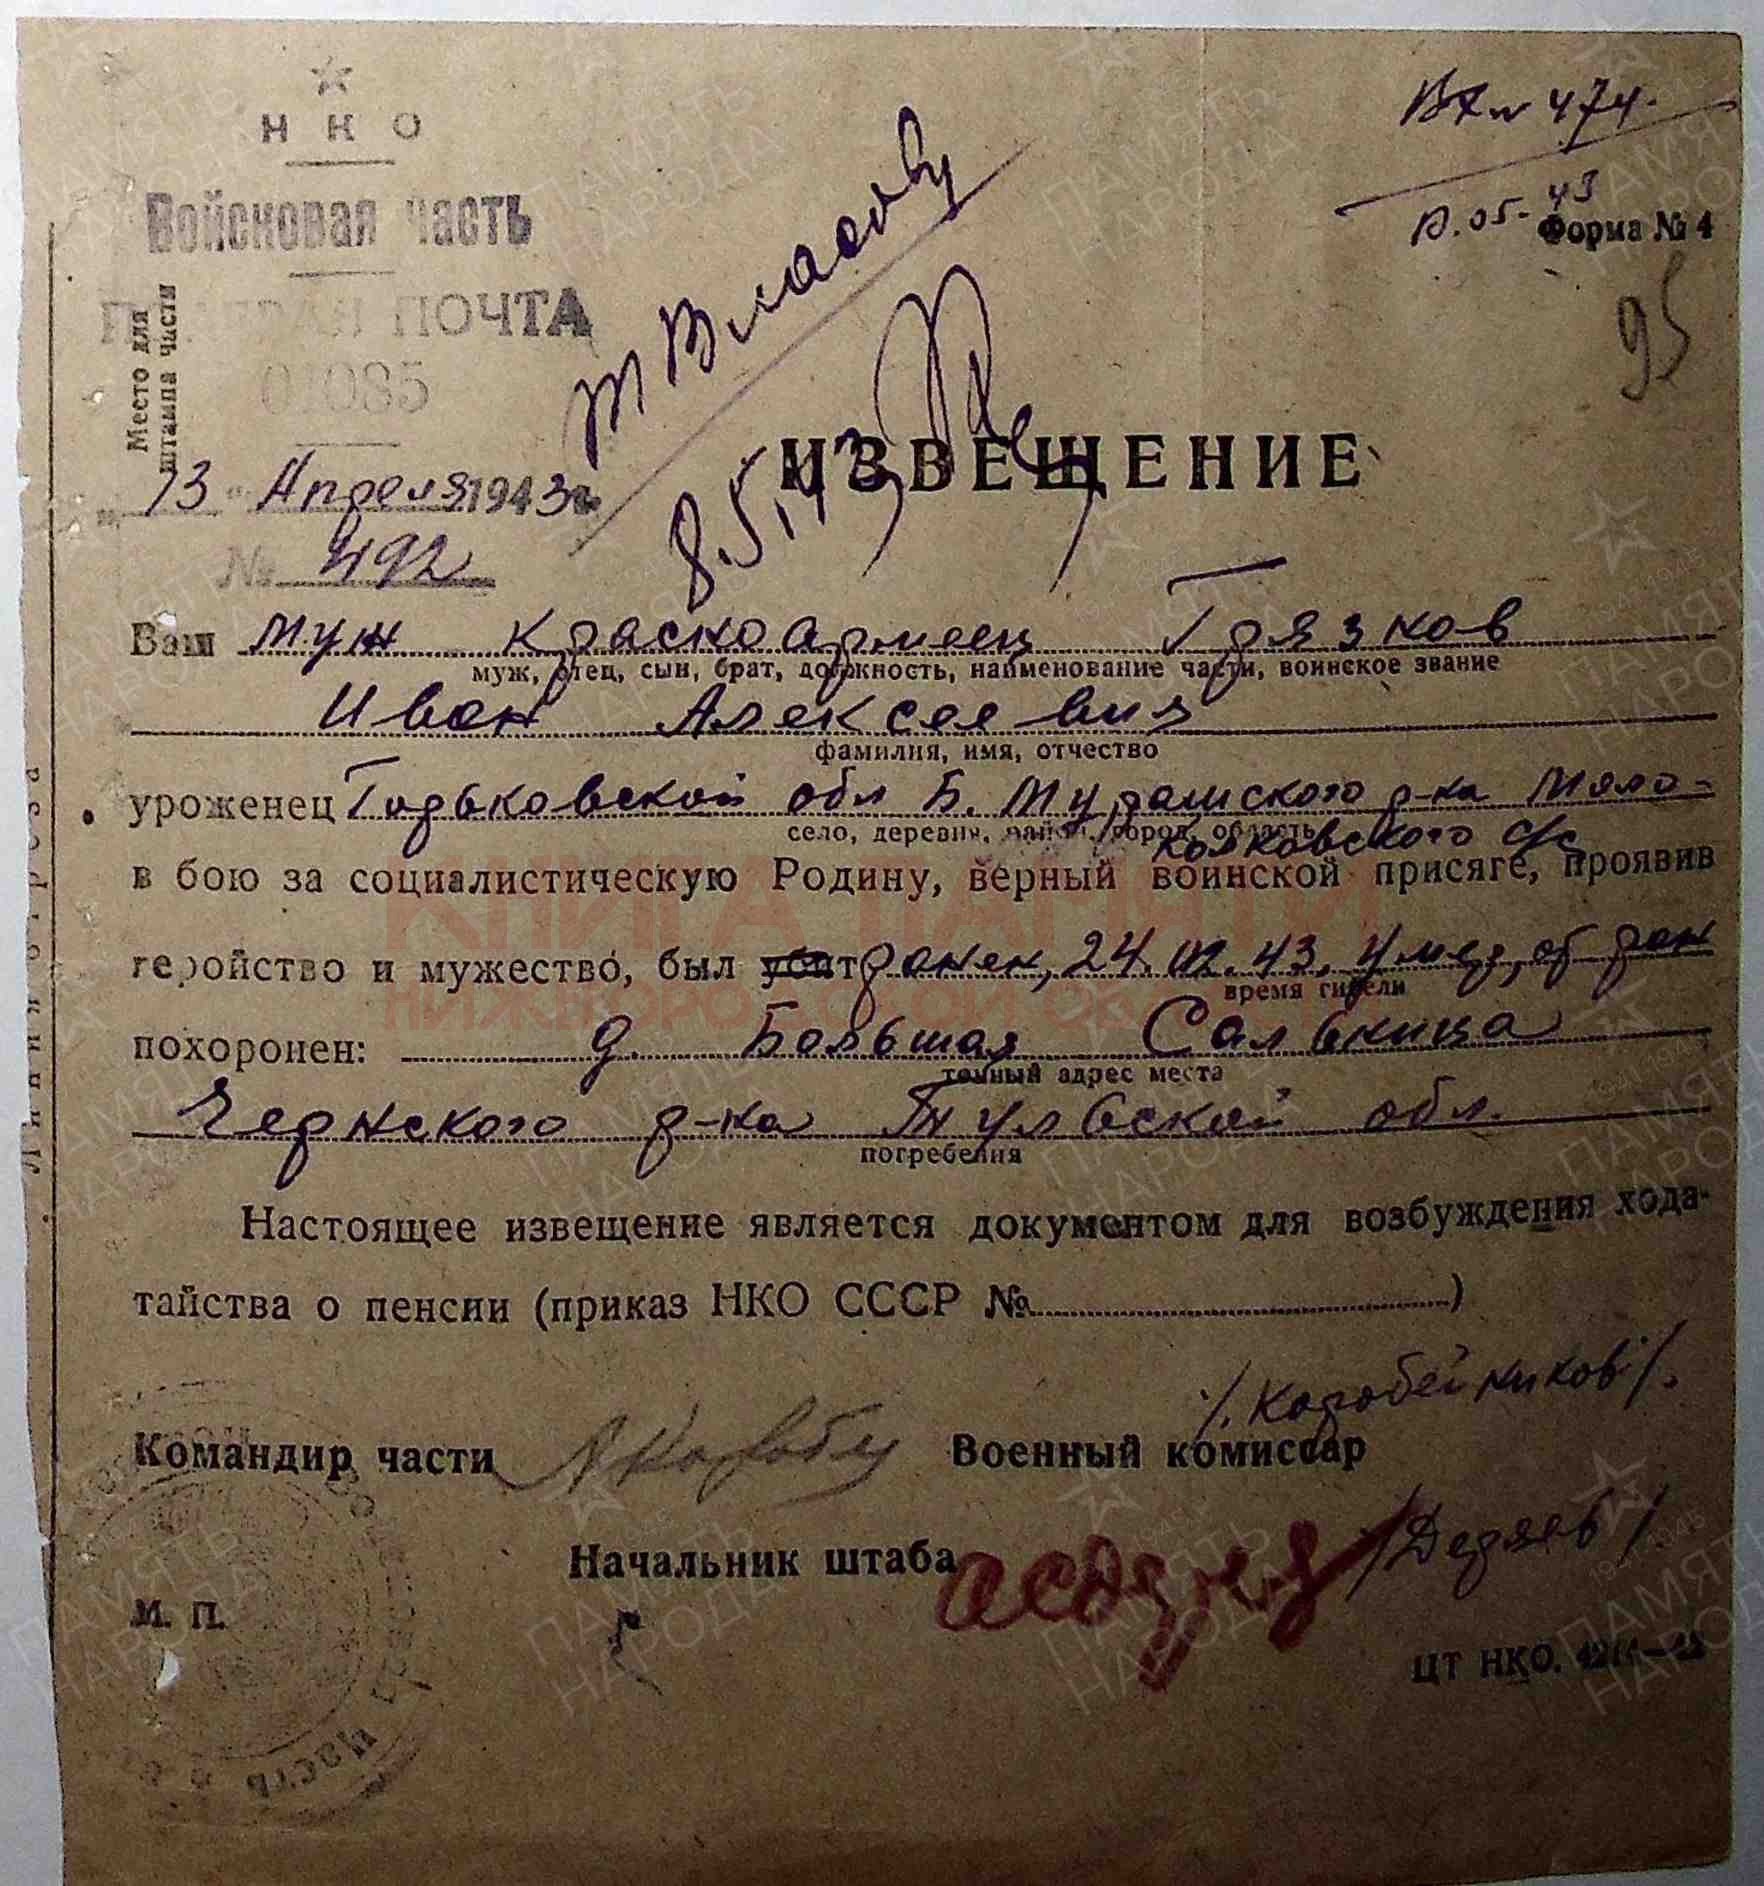 Вх № 474.
НКО
Войсковая часть
05-43
Форма № 4
ПОЛЕВАЯ ПОЧТА
01085
Место для
штампа части
т Власову
95
8.5.43
ИЗВЕЩЕНИЕ
„13“ Апреля 1943 г.
№ 492
Ваш муж красноармеец Грязнов
муж, отец, сын, брат, должность, наименование части, воинское звание
Иван Алексеевич
фамилия, имя, отчество
уроженец Горьковской обл Б. Мурашкского р-ка
село, деревня, район, город, область
с/с
в бою за социалистическую Родину, верный воинской присяге, проявив
геройство и мужество, был убит ранен, 24.02.43, умер, от ран
время гибели
похоронен: д. Большая Сальница
точный адрес места
Чернского р-на Тульской обл.
погребения
Настоящее извещение является документом для возбуждения хода-
тайства о пенсии (приказ НКО СССР №)
/Коробейников/.
Командир части Военный комиссар
Начальник штаба /Деряев/
М. П.
ЦТ НКО.
Линия отреза
ПАМЯТЬ НАРОДА
1941-1945
КНИГА ПАМЯТИ
НИЖЕГОРОДСКОЙ ОБЛАСТИ